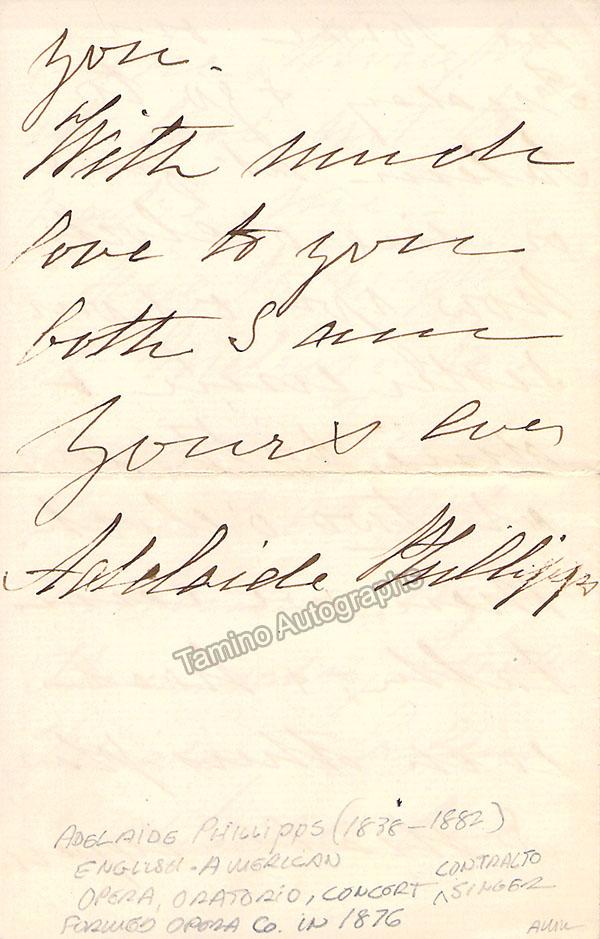 you.
With much
love to you
both I am
yours ever
Adelaide Phillipps
Tamino Autographs
ADELAIDE PHILLIPPS (1838-1882)
ENGLISH-AMERICAN
CONTRALTO
OPERA, ORATORIO, CONCERT ^ SINGER
FORMED OPERA CO. IN 1876